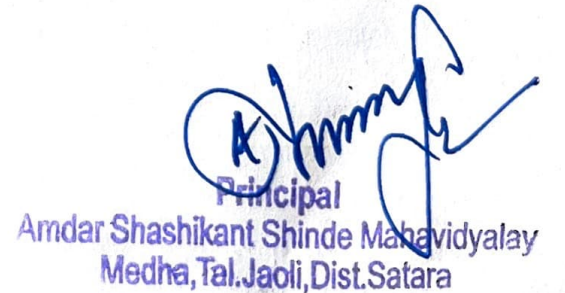 Principal
Amdar Shashikant Shinde Mahavidyalay
Medha,Tal.Jaoli,Dist.Satara